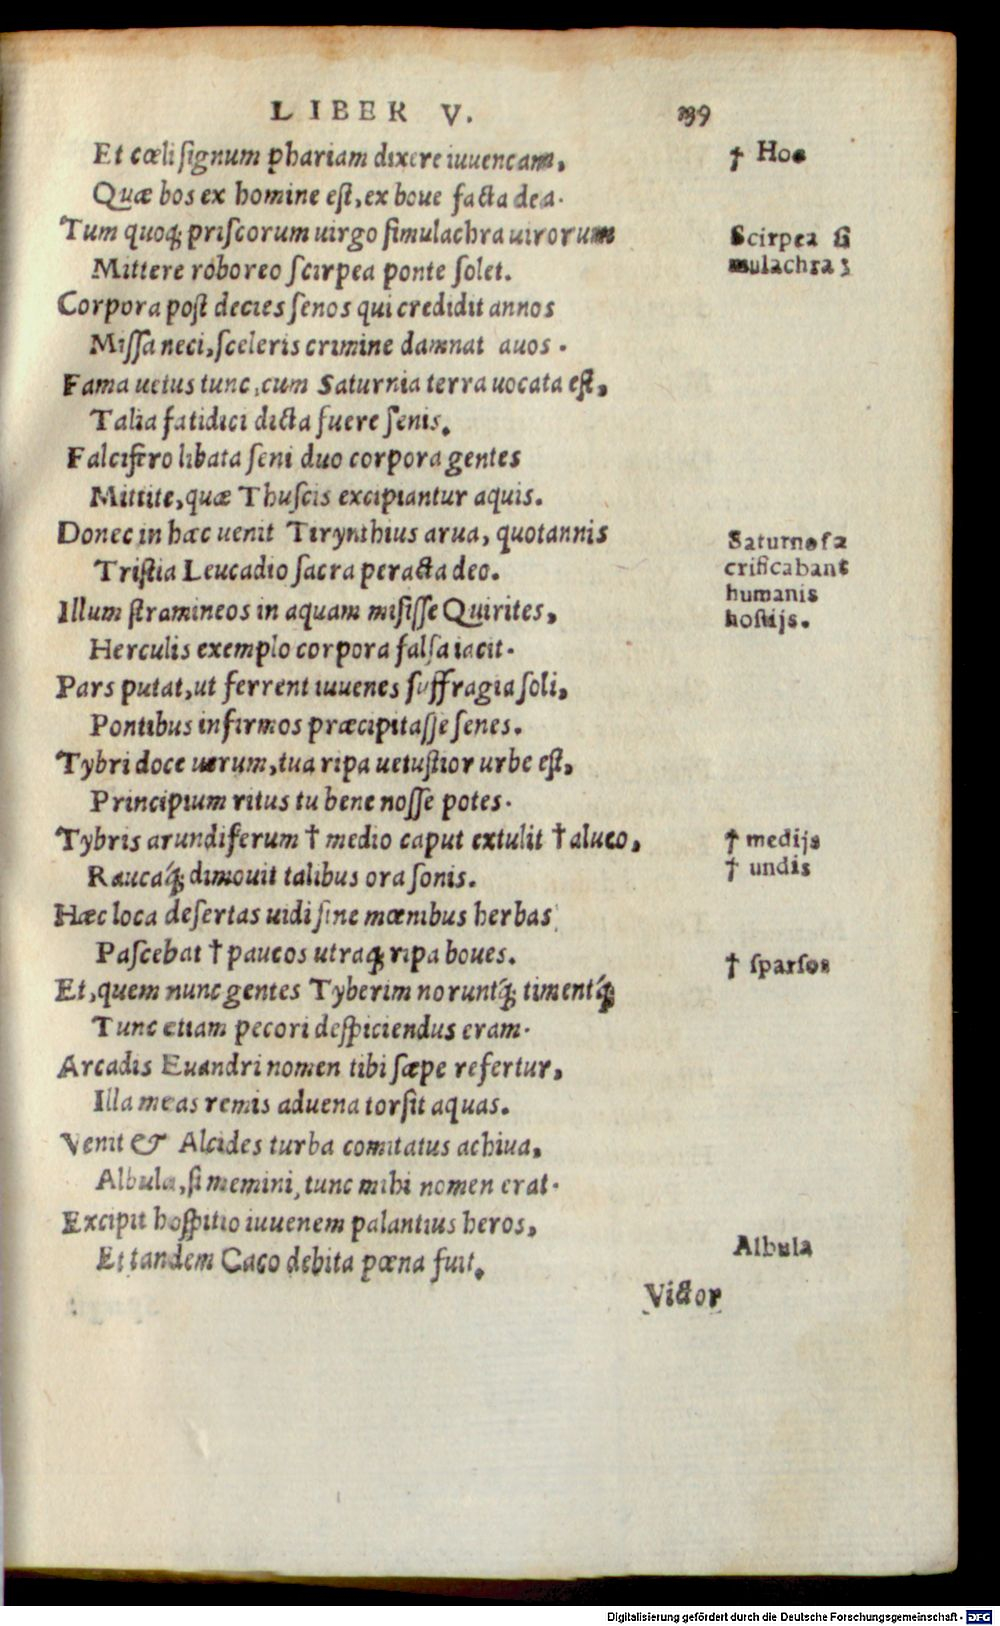 LIBER V. 139
Et cœli signum phariam dixere iuuencam,
† Hoc
Quæ bos ex homine est, ex boue facta dea.
Tum quoq; priscorum uirgo simulachra uirorum
Mittere roboreo scirpea ponte solet.
Scirpea si
mulachra
Corpora post decies senos qui credidit annos
Missa neci, sceleris crimine damnat auos.
Fama uetus tunc, cum Saturnia terra uocata est,
Talia fatidici dicta fuere senis.
Falcifero libata seni duo corpora gentes
Mittite, quæ Thuscis excipiantur aquis.
Donec in hæc uenit Tirynthius arua, quotannis
Tristia Leucadio sacra peracta deo.
Saturno sa
crificabant
humanis
hostijs.
Illum stramineos in aquam misisse Quirites,
Herculis exemplo corpora falsa iacit.
Pars putat, ut ferrent iuuenes suffragia soli,
Pontibus infirmos præcipitasse senes.
Tybri doce uerum, tua ripa uetustior urbe est,
Principium ritus tu bene nosse potes.
Tybris arundiferum † medio caput extulit † alueo,
† medijs
† undis
Raucaq́; dimouit talibus ora sonis.
Hæc loca desertas uidi sine mœnibus herbas,
Pascebat † paucos utraq; ripa boues.
† sparsos
Et, quem nunc gentes Tyberim noruntq́; timentq́;
Tunc etiam pecori despiciendus eram.
Arcadis Euandri nomen tibi sæpe refertur,
Illa meas remis aduena torsit aquas.
Venit & Alcides turba comitatus achiua,
Albula, si memini, tunc mihi nomen erat.
Excipit hospitio iuuenem palantius heros,
Et tandem Caco debita pœna fuit.
Albula
Victor
Digitalisierung gefördert durch die Deutsche Forschungsgemeinschaft - DFG